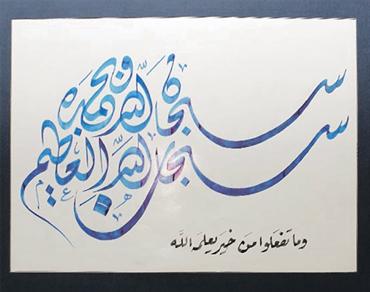 سبحان الله وبحمده
سبحان الله العظيم
وما تفعلوا من خير يعلمه الله